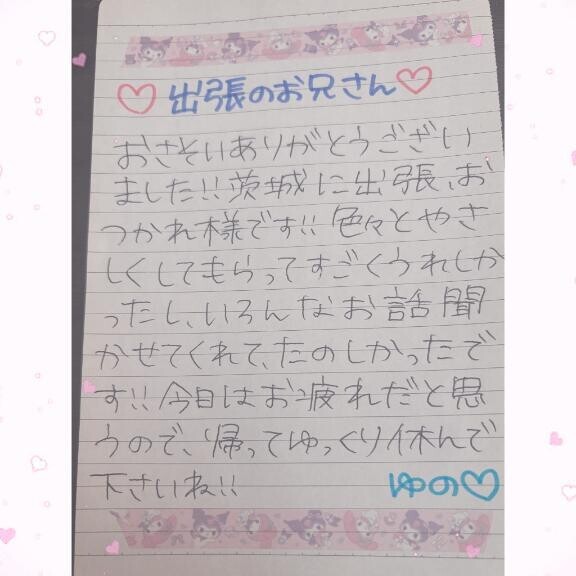 ♡出張のお兄さん♡
おさそいありがとうござい
ました!!茨城に出張、お
つかれ様です!!色々とやさ
しくしてもらってすごくうれしか
ったし、いろんなお話聞
かせてくれて、たのしかったで
す!!今日はお疲れだと思
うので、帰ってゆっくり休んで
下さいね!!
ゆの♡